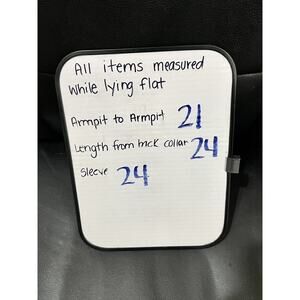 All items measured
while lying flat
Armpit to Armpit 21
Length from back collar 24
Sleeve 24